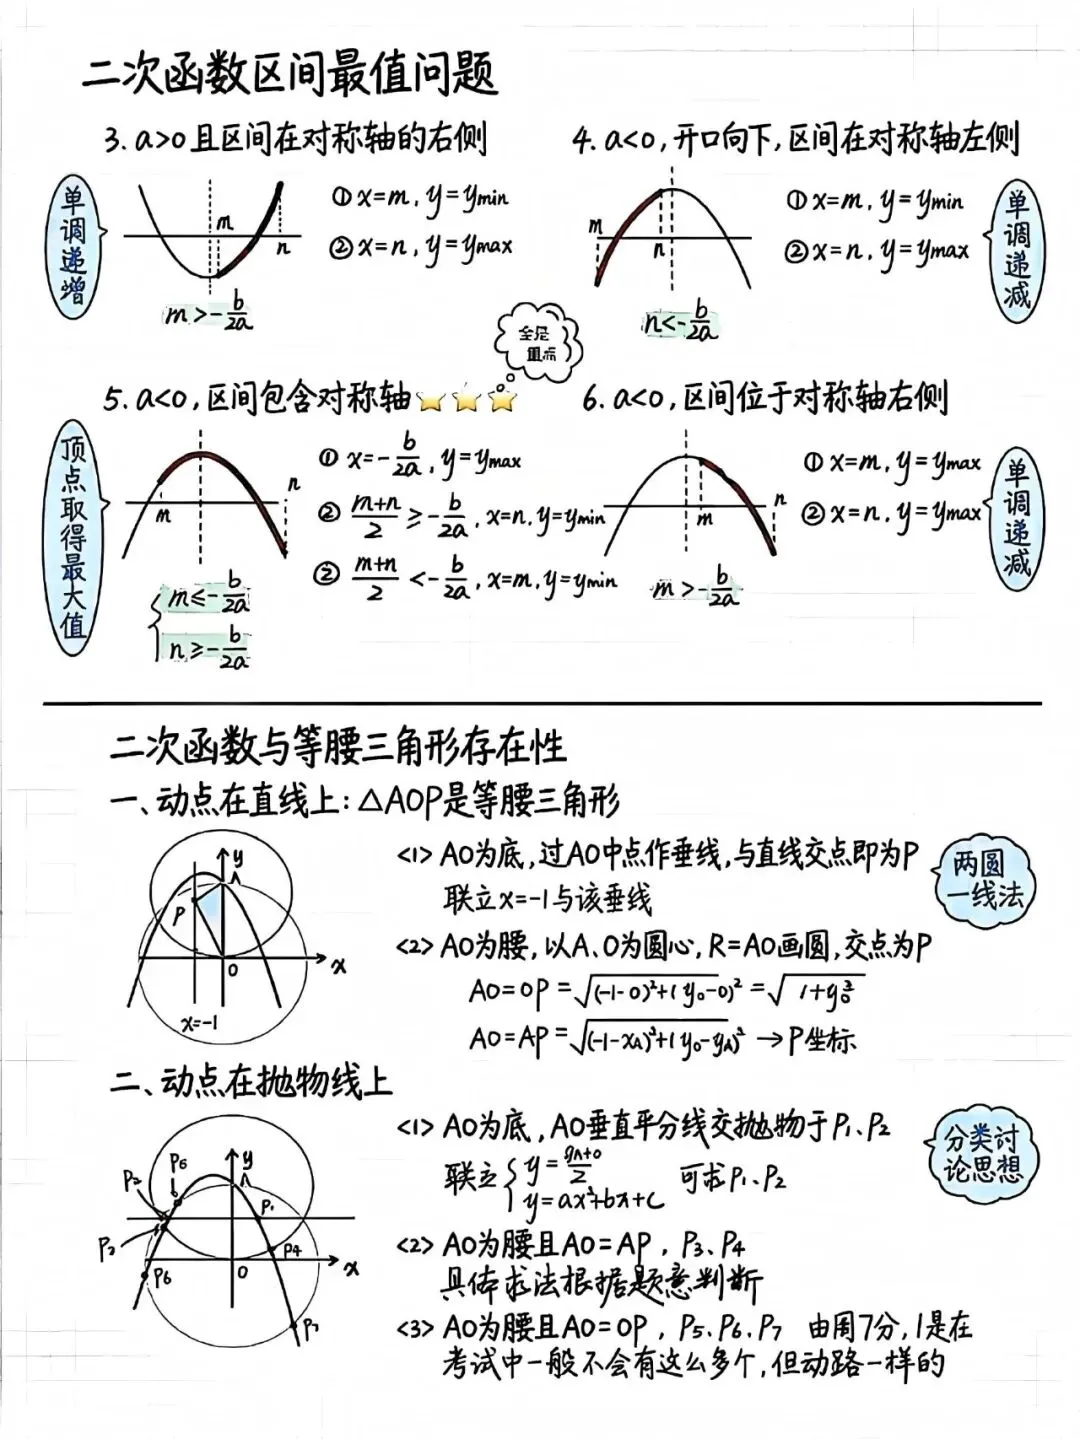 二次函数区间最值问题
3. a>0且区间在对称轴的右侧
单调递增
m
n
① x=m, y=ymin
② x=n, y=ymax
m>-b/2a
4. a<0, 开口向下, 区间在对称轴左侧
m
n
① x=m, y=ymin
② x=n, y=ymax
n<-b/2a
单调递减
全是
重点
5. a<0, 区间包含对称轴
顶点取得最大值
m
n
① x=-b/2a, y=ymax
② (m+n)/2 ≥ -b/2a, x=n, y=ymin
② (m+n)/2 < -b/2a, x=m, y=ymin
m≤-b/2a
n≥-b/2a
6. a<0, 区间位于对称轴右侧
m
n
① x=m, y=ymax
② x=n, y=ymax
m>-b/2a
单调递减
二次函数与等腰三角形存在性
一、动点在直线上: △AOP是等腰三角形
y
A
P
O
x
x=-1
<1> AO为底, 过AO中点作垂线, 与直线交点即为P
联立x=-1与该垂线
两圆
一线法
<2> AO为腰, 以A、O为圆心, R=AO画圆, 交点为P
AO=OP=√(-1-0)²+(y₀-0)²=√1+y₀²
AO=AP=√(-1-xA)²+(y₀-yA)² → P坐标
二、动点在抛物线上
P6
y
A
P2
P1
P3
P4
O
x
P6
P7
<1> AO为底, AO垂直平分线交抛物于P₁、P₂
联立{y=(yA+0)/2
y=ax²+bx+c
可求P₁、P₂
分类讨
论思想
<2> AO为腰且AO=AP, P₃、P₄
具体求法根据题意判断
<3> AO为腰且AO=OP, P₅、P₆、P₇
由周7分, 1是在
考试中一般不会有这么多个, 但动路一样的